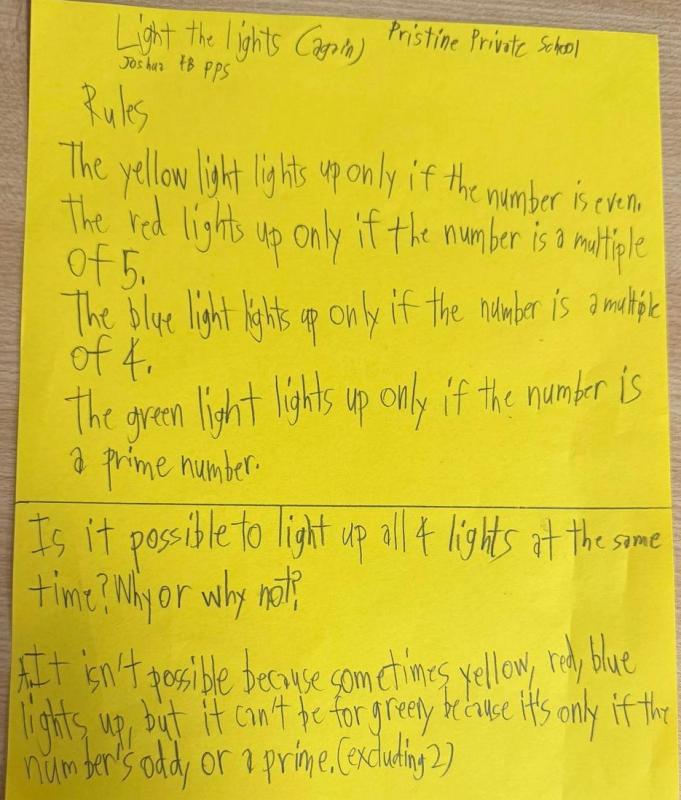 Light the lights (again) Pristine Private School
Joshua FB PPS
Rules
The yellow light lights up only if the number is even.
The red lights up only if the number is a multiple
of 5.
The blue light lights up only if the number is a multiple
of 4.
The green light lights up only if the number is
a prime number.
Is it possible to light up all 4 lights at the same
time? Why or why not?
A. It isn't possible because sometimes yellow, red, blue
lights up, but it can't be for green, because it's only if the
number's odd, or a prime. (excluding 2)